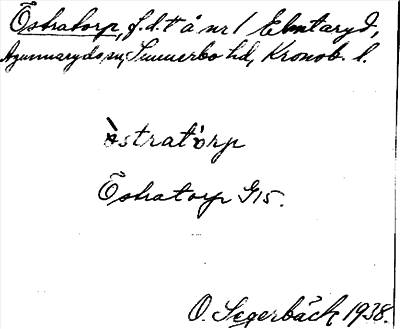 Östratorp, f.d. t å nr 1 Elmtaryd,
Agunnaryds sn, Sunnerbo hd, Kronob. l.
òstratòrp
Östratorp G15.
O. Segerbäck 1938.